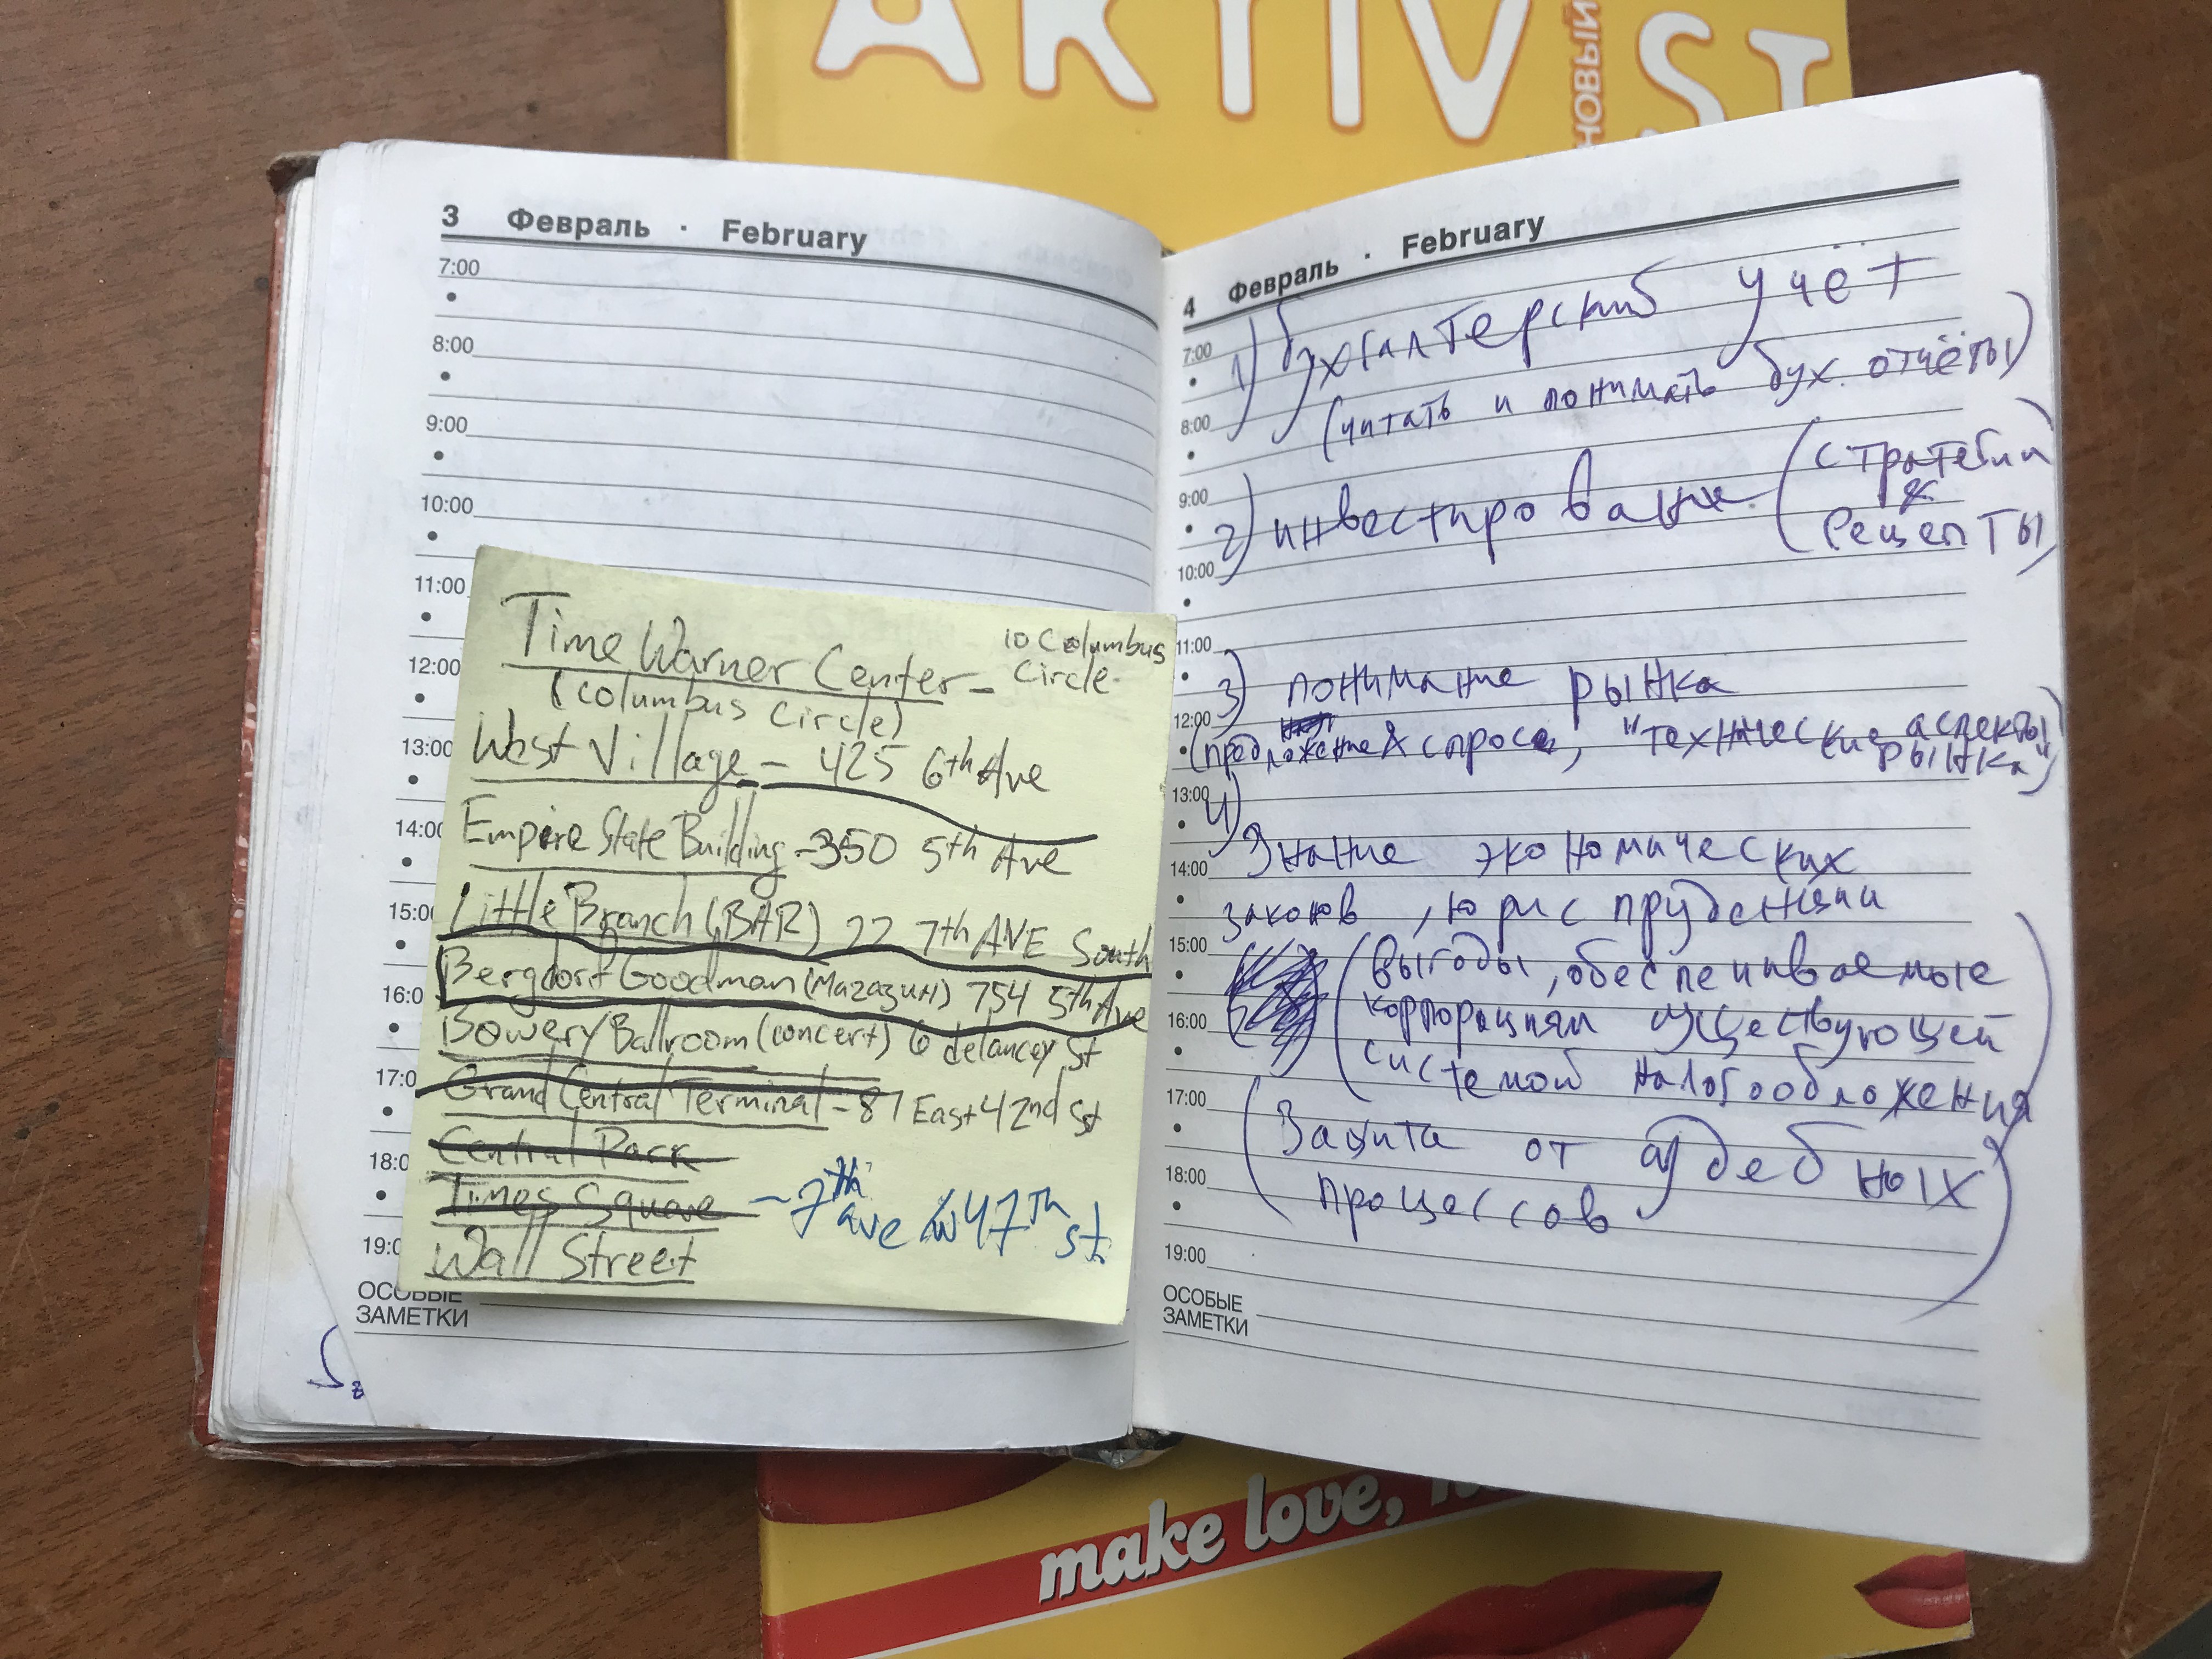 AKTIVIST
НОВЫЙ
make love,
3 Февраль · February
7:00
8:00
9:00
10:00
11:00
12:00
13:00
14:00
15:00
16:0
17:0
18:0
19:0
ОСОБЫЕ
ЗАМЕТКИ
Time Warner Center - 10 Columbus
(columbus circle) Circle
West Village - 425 6th Ave
Empire State Building - 350 5th Ave
Little Branch (BAR) 22 7th AVE South
Bergdorf Goodman (Магазин) 754 5th Ave
Bowery Ballroom (concert) 6 delancey St
Grand Central Terminal - 87 East 42nd St
Central Park
Times Square - 7th ave W 47th st
Wall Street
4 Февраль · February
7:00
8:00
9:00
10:00
11:00
12:00
13:00
14:00
15:00
16:00
17:00
18:00
19:00
ОСОБЫЕ
ЗАМЕТКИ
1) Бухгалтерский учёт
(читать и понимать бух. отчёты)
2) инвестирование (стратегии
(рецепты)
3) понимание рынка
(предложение & спроса, "технические аспекты
рынка")
4) Знание экономических
законов, юриспруденции
(выгоды, обеспеиваемые
корпорациям существующей
системой налогообложения)
(Защита от судебных
процессов)